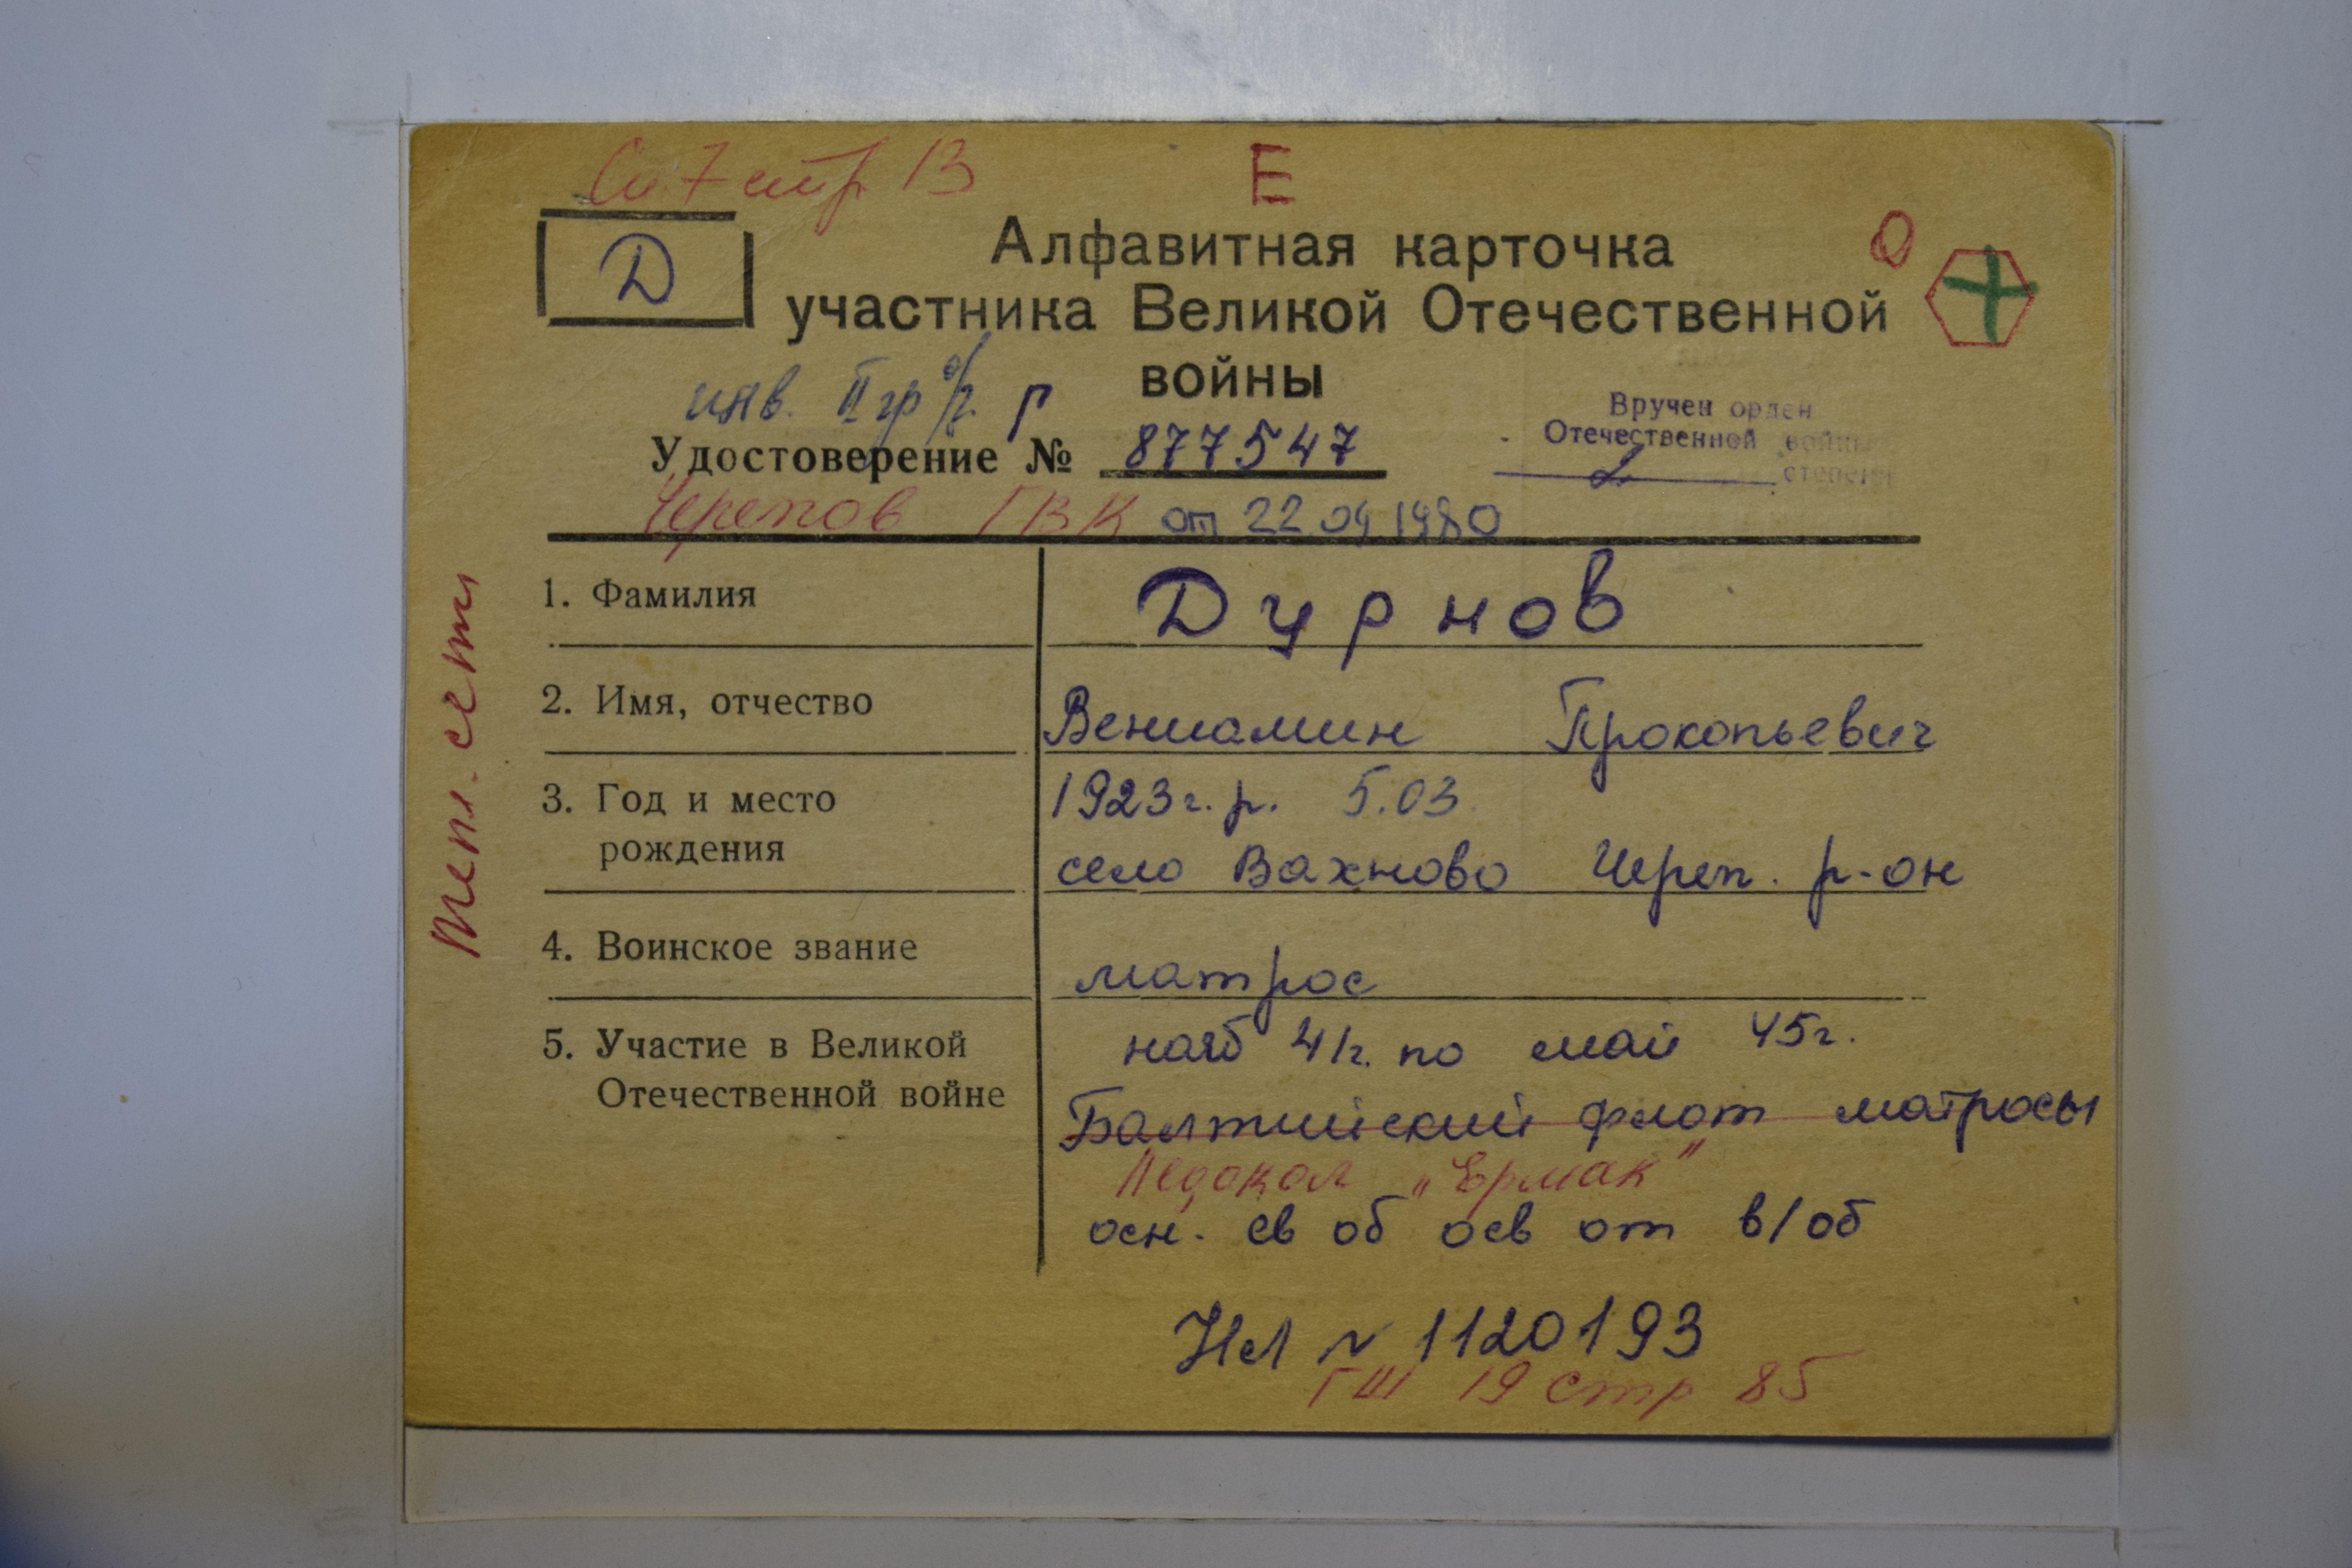 Сп 7 стр 13
Е
Д
О
Алфавитная карточка
участника Великой Отечественной
войны
инв. II гр о/з. р
Вручен орден
Отечественной войны
степени
Удостоверение № 877547
Черепов ГВК от 22 04 1980
Тепл. сети
1. Фамилия Дурнов
2. Имя, отчество Вениамин Прокопьевич
3. Год и место 1923 г. р. 5.03
рождения село Вахново Череп. р-он
4. Воинское звание матрос
5. Участие в Великой нояб 41г. по май 45г.
Отечественной войне Балтийский флот матросы
Ледокол „Ермак"
осн. св об осв от в/об
НЛ № 1120193
ГШ 19 стр 85